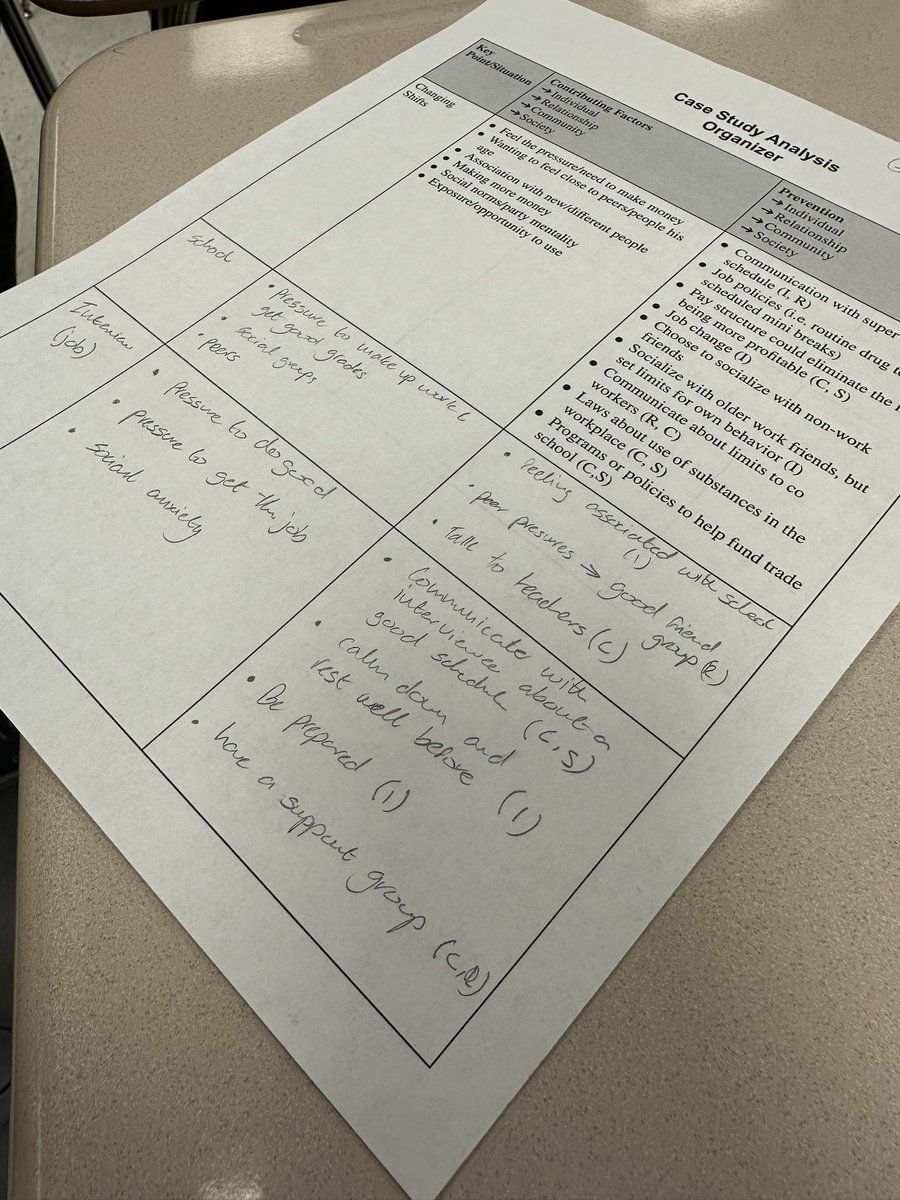 Case Study Analysis
Organizer
Key
Point/Situation
Contributing Factors
→ Individual
→ Relationship
→ Community
→ Society
Prevention
→ Individual
→ Relationship
→ Community
→ Society
Changing
Shifts
• Feel the pressure/need to make money
• Wanting to feel close to peers/people his
age
• Association with new/different people
• Making more money
• Social norms/party mentality
• Exposure/opportunity to use
• Communication with super
schedule (I, R)
• Job policies (i.e. routine drug
scheduled mini breaks)
• Pay structure could eliminate the
being more profitable (C, S)
• Job change (I)
• Choose to socialize with non-work
friends
• Socialize with older work friends, but
set limits for own behavior (I)
• Communicate about limits to co
workers (R, C)
• Laws about use of substances in the
workplace (C, S)
• Programs or policies to help fund trade
school (C,S)
School
• Pressure to make up work &
get good grades
• social groups
• peers
• Feeling associated with
(I)
• peer presures → good friend
group (R)
• Talk to teachers (C)
Interview
(job)
• Pressure to do good
• pressure to get the job
• social anxiety
• Communicate with
interviewer about a
good schedule (C,S)
• calm down and
rest well before (I)
• Be prepared (I)
• have a support group (C,R)